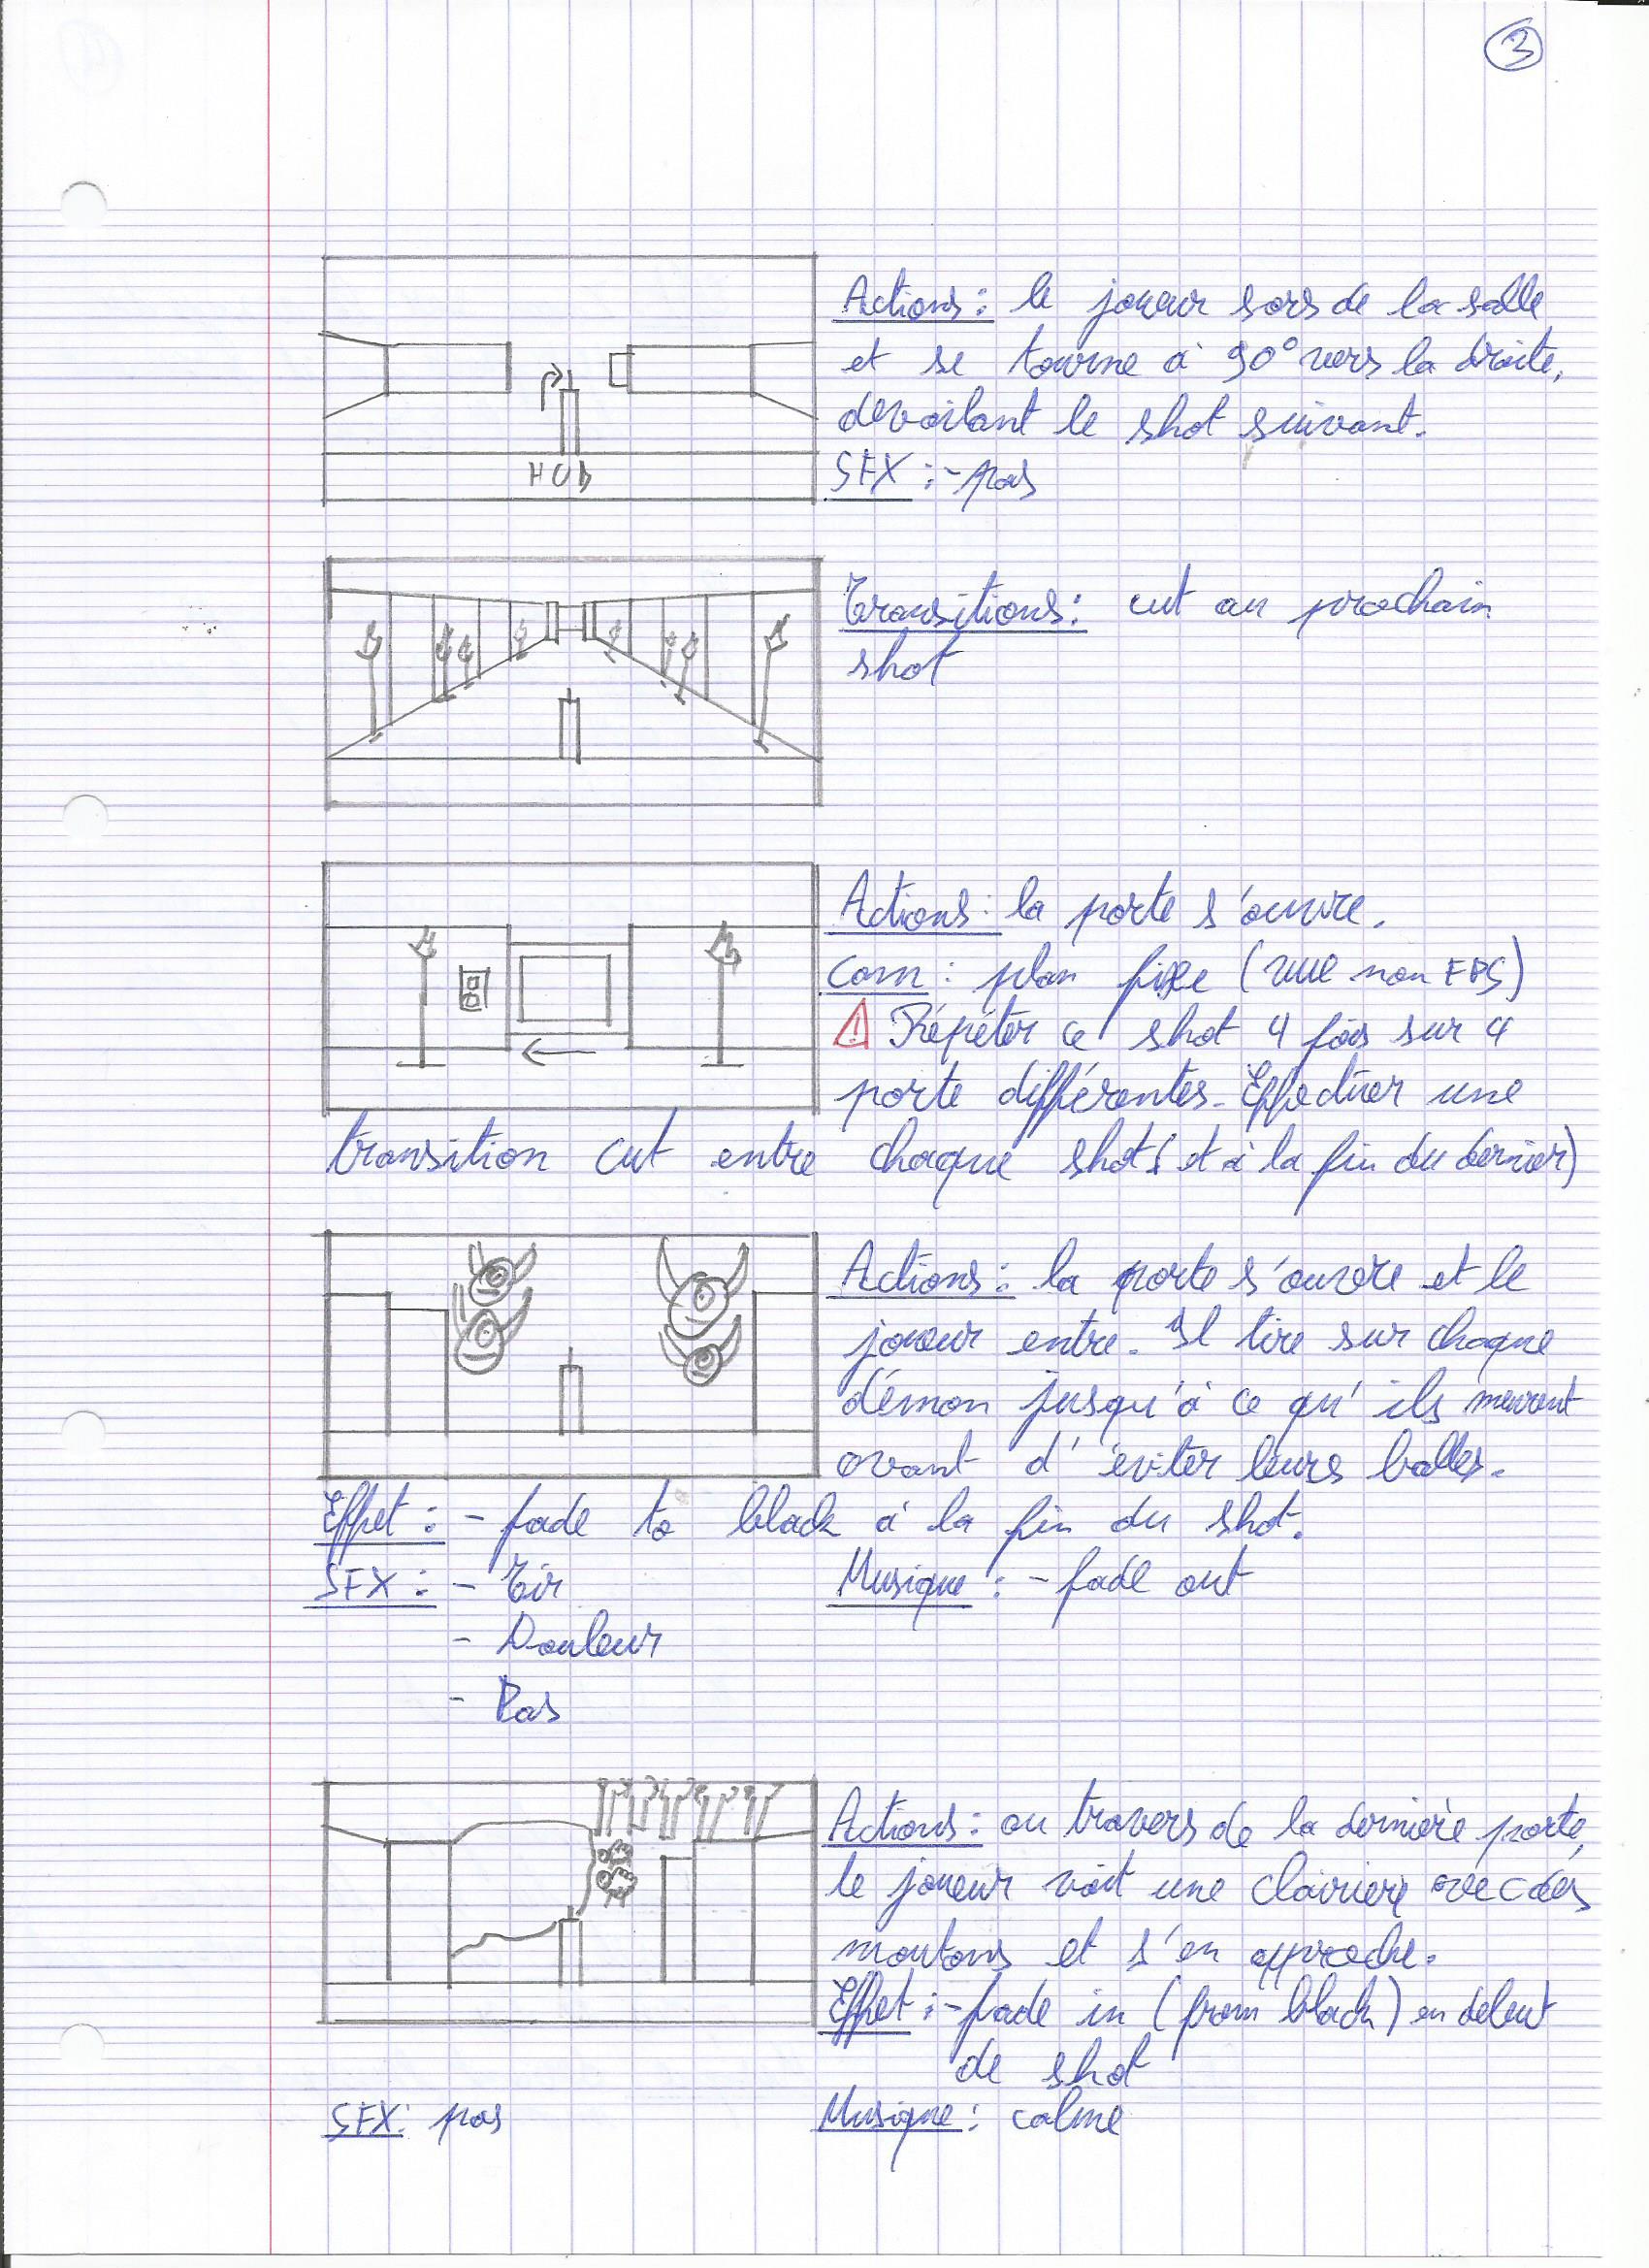 3
Actions : le joueur sors de la salle
et se tourne à 90° vers la droite,
devoilant le shot suivant.
SFX : - pas
HUD
Transitions : cut au prochain
shot
Actions : la porte s'ouvre.
Cam : plan fixe (vue non FPS)
⚠ Répéter ce shot 4 fois sur 4
porte différentes. Effectuer une
transition cut entre chaque shot (et à la fin du dernier)
Actions : la porte s'ouvre et le
joueur entre. Il tire sur chaque
démon jusqu'à ce qu'ils meurent
avant d'éviter leurs balles.
Effet : - fade to black à la fin du shot.
SFX : - Tir
- Douleur
- Pas
Musique : - fade out
Actions : au travers de la dernière porte,
le joueur voit une clairiere avec des
moutons et s'en approche.
Effet : - fade in (from black) en debut
de shot
SFX : pas
Musique : calme